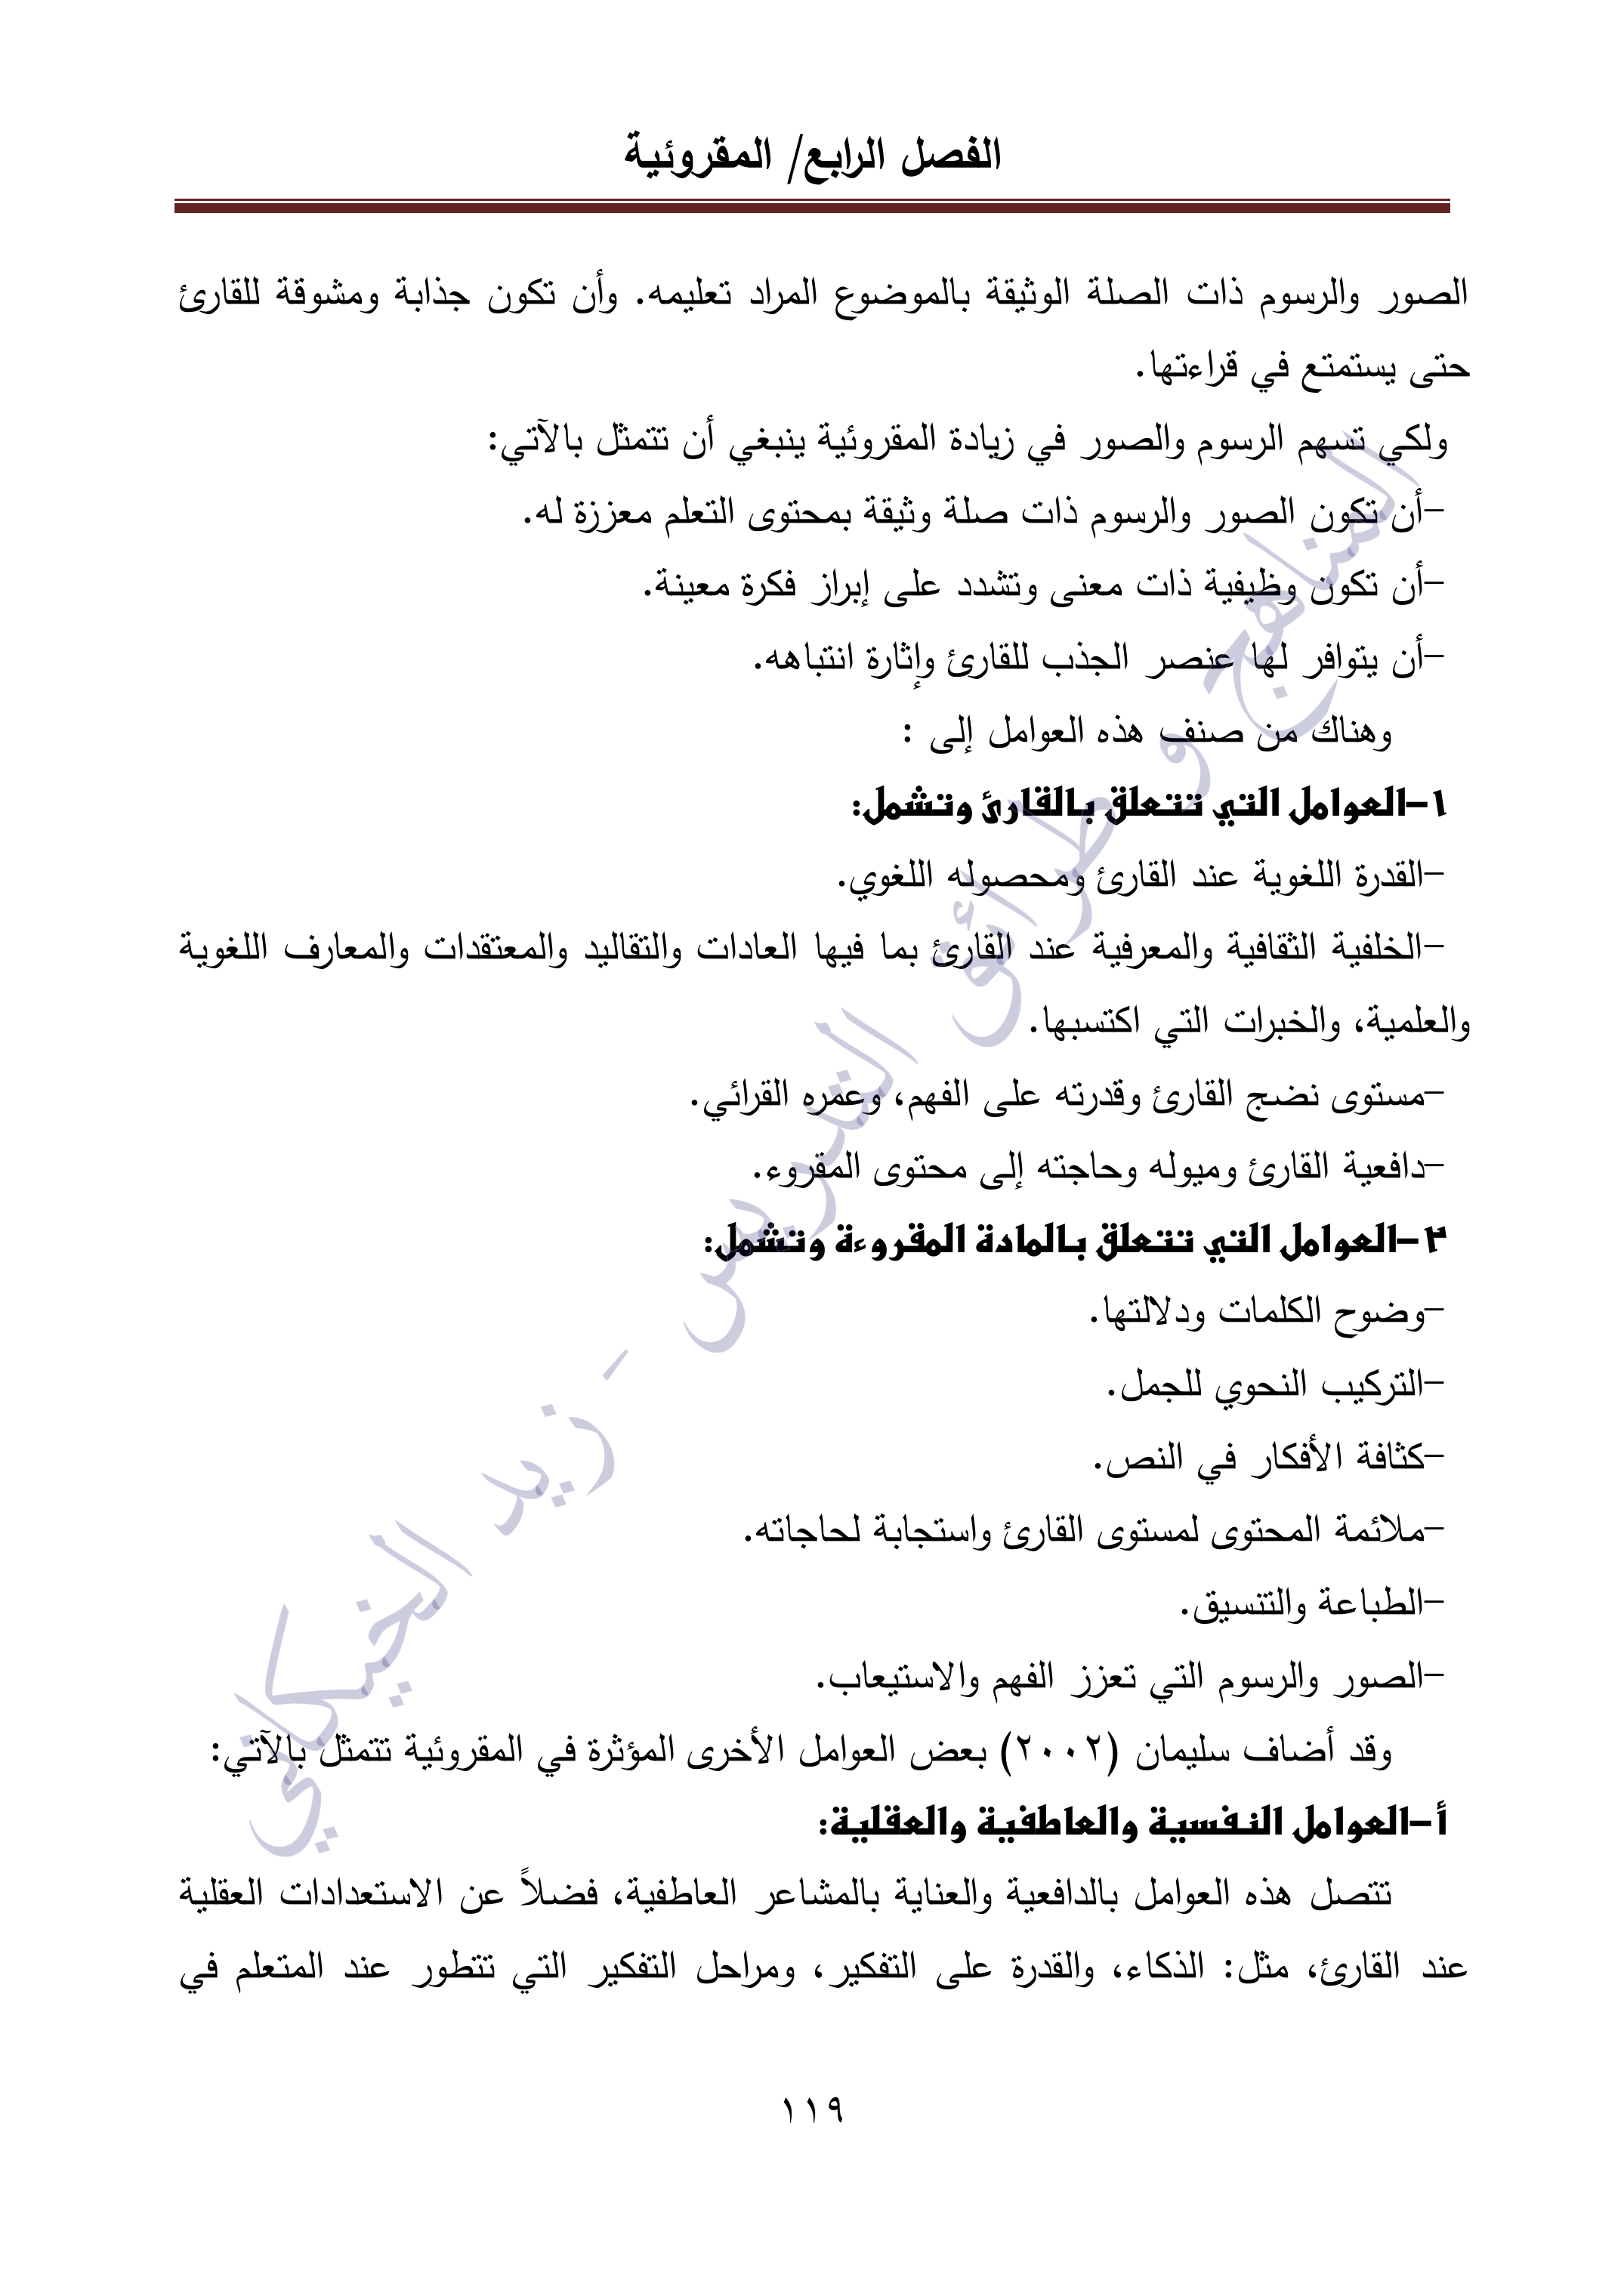 الفصل الرابع/ المقروئية
الصور والرسوم ذات الصلة الوثيقة بالموضوع المراد تعليمه. وأن تكون جذابة ومشوقة للقارئ
حتى يستمتع في قراءتها.
ولكي تسهم الرسوم والصور في زيادة المقروئية ينبغي أن تتمثل بالآتي:
-أن تكون الصور والرسوم ذات صلة وثيقة بمحتوى التعلم معززة له.
-أن تكون وظيفية ذات معنى وتشدد على إبراز فكرة معينة.
-أن يتوافر لها عنصر الجذب للقارئ وإثارة انتباهه.
وهناك من صنف هذه العوامل إلى :
١-العوامل التي تتعلق بالقارئ وتشمل:
-القدرة اللغوية عند القارئ ومحصوله اللغوي.
-الخلفية الثقافية والمعرفية عند القارئ بما فيها العادات والتقاليد والمعتقدات والمعارف اللغوية
والعلمية، والخبرات التي اكتسبها.
-مستوى نضج القارئ وقدرته على الفهم، وعمره القرائي.
-دافعية القارئ وميوله وحاجته إلى محتوى المقروء.
٢-العوامل التي تتعلق بالمادة المقروءة وتشمل:
-وضوح الكلمات ودلالتها.
-التركيب النحوي للجمل.
-كثافة الأفكار في النص.
-ملائمة المحتوى لمستوى القارئ واستجابة لحاجاته.
-الطباعة والتنسيق.
-الصور والرسوم التي تعزز الفهم والاستيعاب.
وقد أضاف سليمان (٢٠٠٢) بعض العوامل الأخرى المؤثرة في المقروئية تتمثل بالآتي:
أ-العوامل النفسية والعاطفية والعقلية:
تتصل هذه العوامل بالدافعية والعناية بالمشاعر العاطفية، فضلاً عن الاستعدادات العقلية
عند القارئ، مثل: الذكاء، والقدرة على التفكير، ومراحل التفكير التي تتطور عند المتعلم في
١١٩
المناهج و طرائق التدريس - زيد الخيكاني